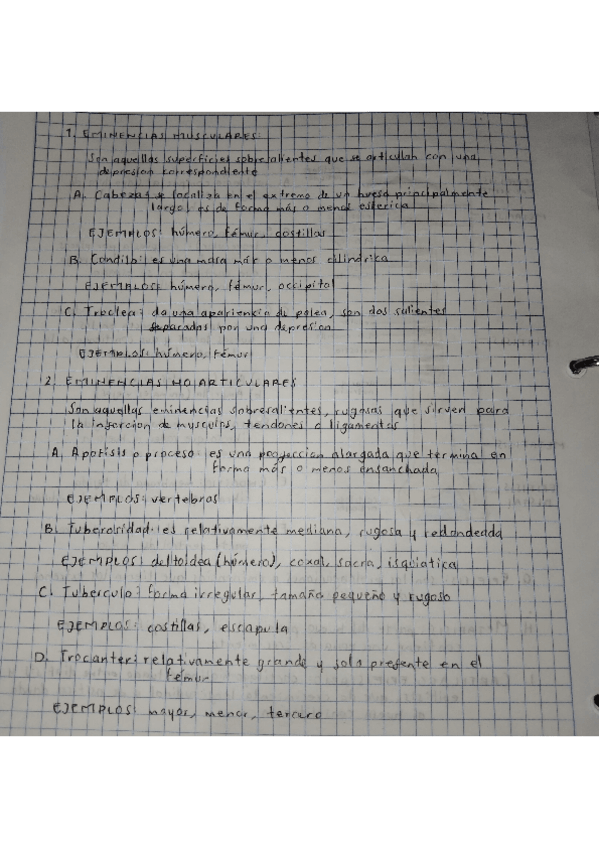 1. EMINENCIAS MUSCULARES:
Son aquellas superficies sobresalientes que se articulan con una
depresion correspondiente
A. Cabezas se localiza en el extremo de un hueso principalmente
largo, es de forma más o menos esferica
EJEMPLOS: húmero, fémur, costillas
B. Condilo: es una masa más o menos cilindrica
EJEMPLOS: húmero, fémur, occipital
C. Troclea: da una apariencia de polea, son dos salientes
separadas por una depresion
EJEMPLOS: húmero, fémur
2. EMINENCIAS NO ARTICULARES
Son aquellas eminencias sobresalientes, rugosas que sirven para
la inserción de musculos, tendones o ligamentos
A. Apofisis o proceso: es una proyeccion alargada que termina en
forma más o menos ensanchada
EJEMPLOS: vertebras
B. Tuberosidad: es relativamente mediana, rugosa y redondeada
EJEMPLOS: deltoidea (húmero), coxal, sacra, isquiatica
C. Tuberculo: forma irregular, tamaño pequeño y rugoso
EJEMPLOS: costillas, escapula
D. Trocanter: relativamente grande y solo presente en el
fémur
EJEMPLOS: mayor, menor, tercero